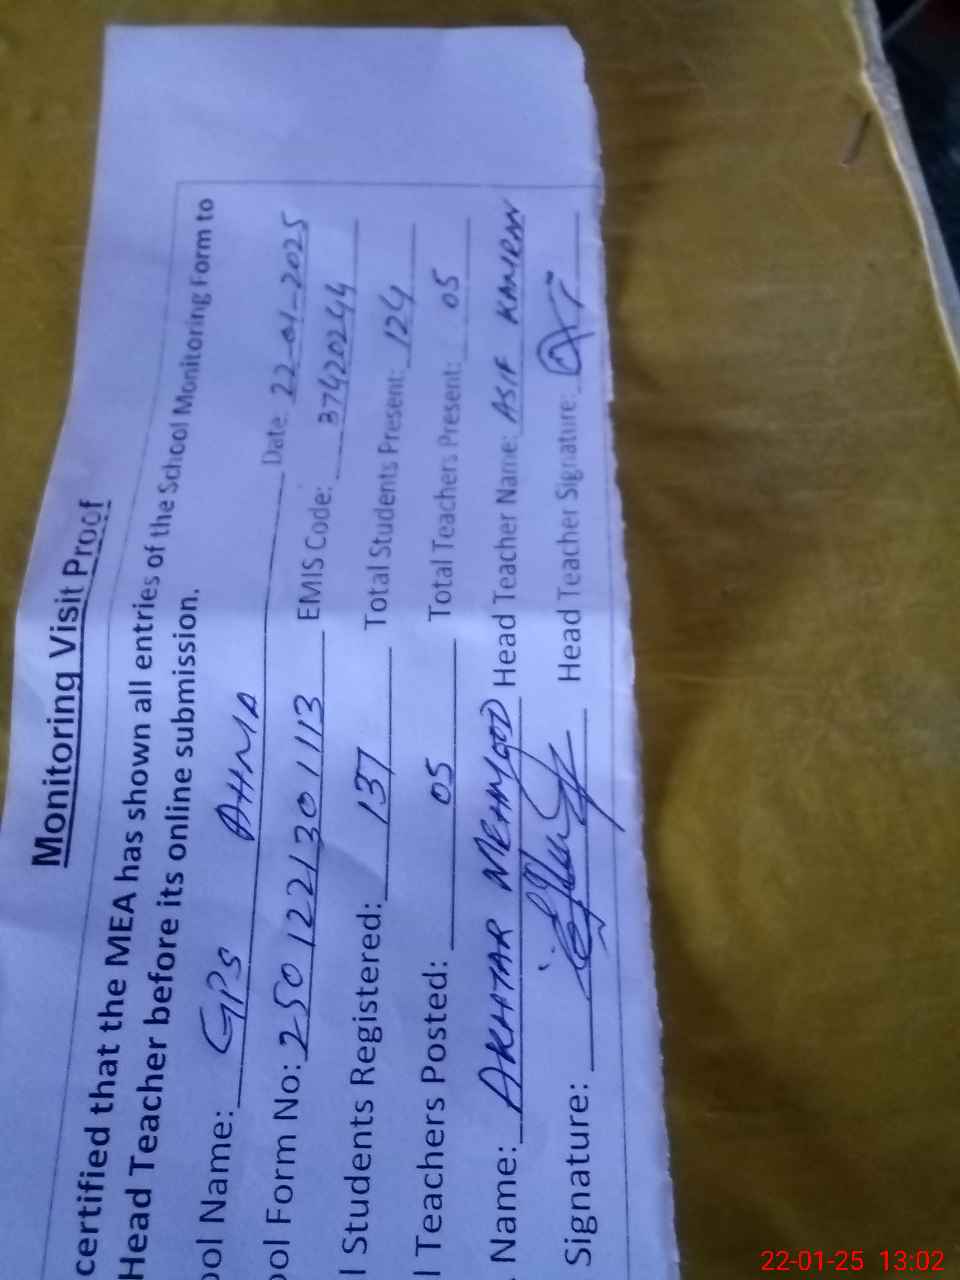 Monitoring Visit Proof
certified that the MEA has shown all entries of the School Monitoring Form to
Head Teacher before its online submission.
ool Name: GPS AHMA Date 22-01-2025
ool Form No: 2501221301113 EMIS Code: 37420244
l Students Registered: 137 Total Students Present: 124
l Teachers Posted: 05 Total Teachers Present: 05
Name: AKHTAR MEHMOOD Head Teacher Name: ASIF KAMRAN
Signature: Head Teacher Signature:
22-01-25 13:02